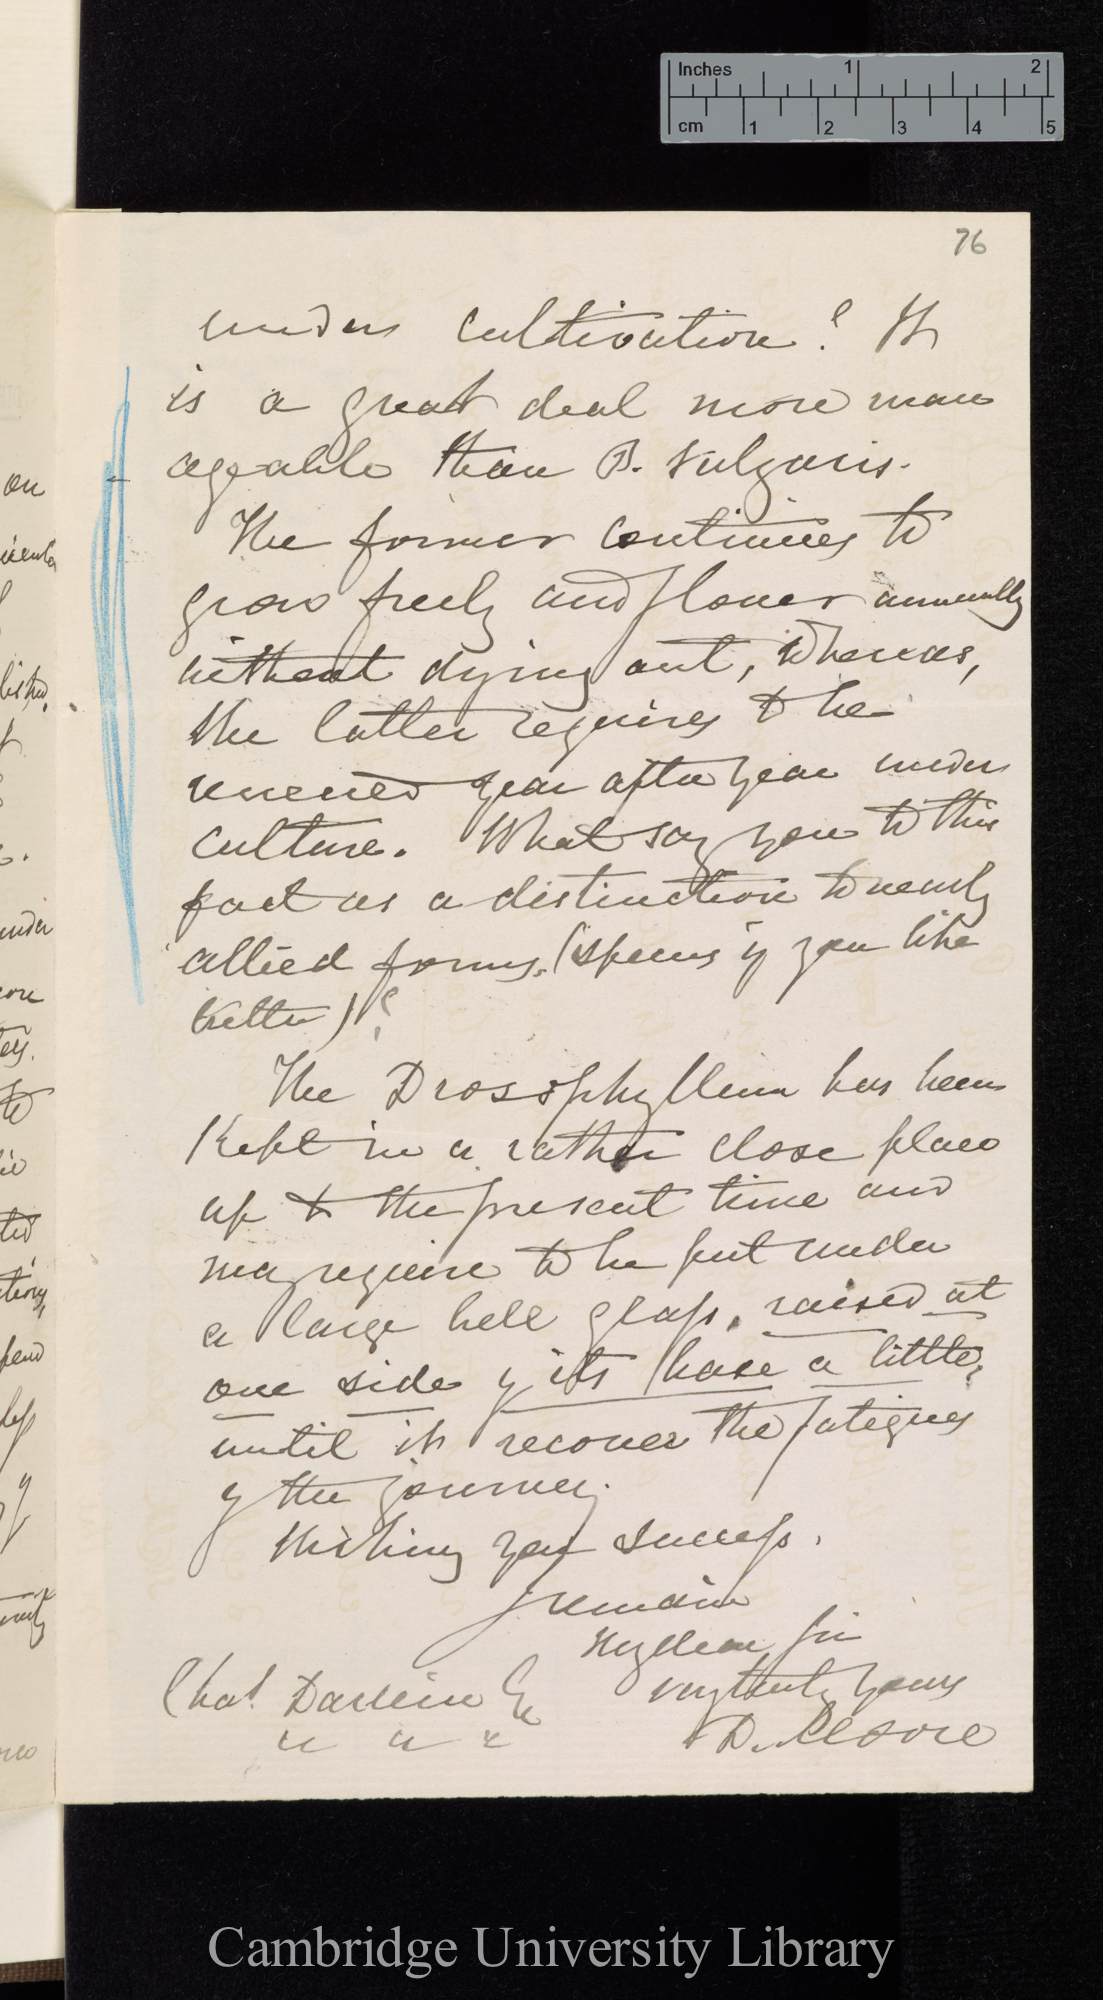 Inches 1 2
cm 1 2 3 4 5
76
under cultivation? It
is a great deal more man
ageable than P. vulgaris.
The former continues to
grow freely and flower annually
without dying out, whereas,
the latter requires to be
renewed year after year under
culture. What say you to this
fact as a distinction to nearly
allied forms. (species if you like
better)?
The Drosophyllum has been
Kept in a rather close place
up to the present time and
may require to be put under
a large bell glass, raised at
one side of its base a little,
until it recover the fatigues
of the journey.
Wishing you success.
I remain
My dear Sir
very truly yours
Chas. Darwin Esq
" " "
D. Moore
on
under
to
Cambridge University Library